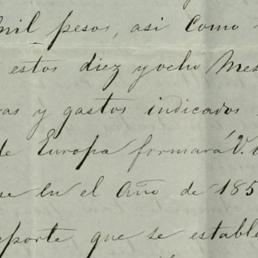 mil pesos, así como
estos diez y ocho Mes
as y gastos indicados
de Europa formará V.
en el Año de 185
eporte que se estable